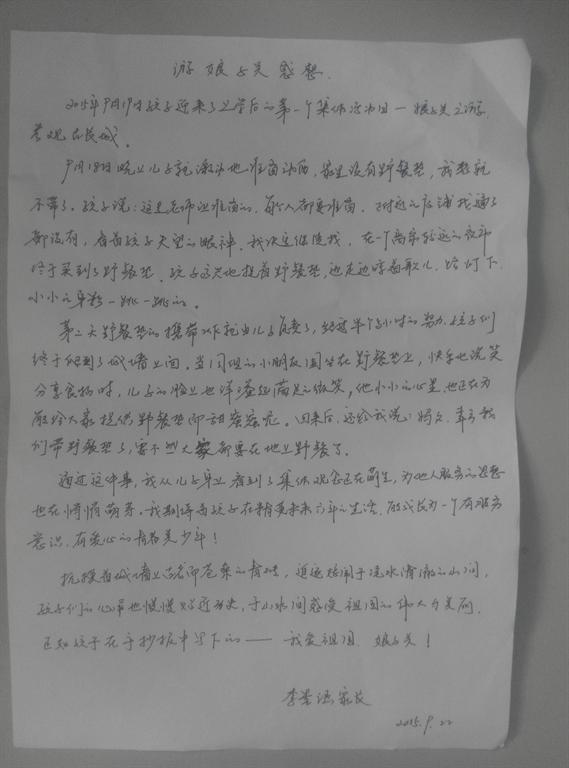 游娘子关感想
2015年9月19日孩子迎来了上学后的第一个集体活动日—娘子关之游,
参观古长城。
9月18日晚上儿子就激动地准备东西,家里没有野餐垫,我想就
不带了。孩子说:这是老师让准备的,每个人都要准备。附近的店铺找遍了
都没有,看着孩子失望的眼神,我决定继续找,在一个离家较远的夜市
终于买到了野餐垫。孩子高兴地提着野餐垫,边走边哼着歌儿,路灯下
小小的身影一跳一跳的。
第二天野餐垫的携带工作就由儿子负责了,经过半个小时的努力,孩子们
终于爬到了城墙上面。当同组的小朋友围坐在野餐垫上,快乐地说笑
分享食物时,儿子的脸上也洋溢着满足的微笑,他小小的心里,也正在为
能给大家提供野餐垫而甜蜜蜜呢。回来后,还给我说:妈妈,幸亏我
们带野餐垫了,要不然大家都要在地上野餐了。
通过这件事,我从儿子身上看到了集体观念正在萌生,为他人服务的思想
也在悄悄萌芽。我期待着孩子在精英未来六年的生活,能成长为一个有服务
意识,有爱心的青春美少年!
抚摸着城墙上古老而苍桑的青砖,追逐嬉闹于流水清澈的山间,
孩子们的心里也慢慢贴近历史,于山水间感受祖国的伟大与美丽,
正如孩子在手抄报中写下的——我爱祖国、娘子关!
家长
2015.9.22